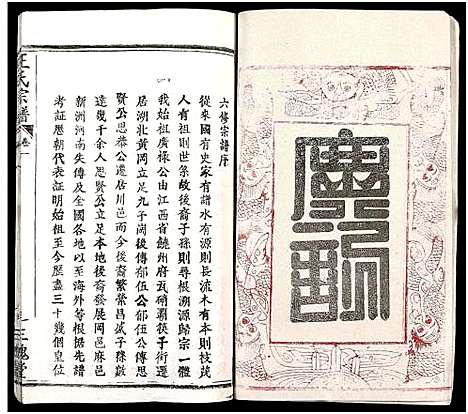 六修宗譜序
從來國有史家有譜水有源則長流木有本則枝茂
人有祖則世系故後裔子孫則尋根溯源歸宗一體
我始祖廣祿公由江西省饒州府瓦硝霸扶子術遷
居湖北黃岡立足九子崗後傳郁伍公郁伍公傳思
賢公思恭公遷居川邑而今後裔繁榮昌盛子孫數
達幾千余人思賢公立足本地後裔發展岡邑麻邑
新洲河南失傳及全國各地以至海外等根据先譜
考証歷朝代表証明始祖至今歷盡三十幾個皇位
王氏宗譜
卷一
三槐堂